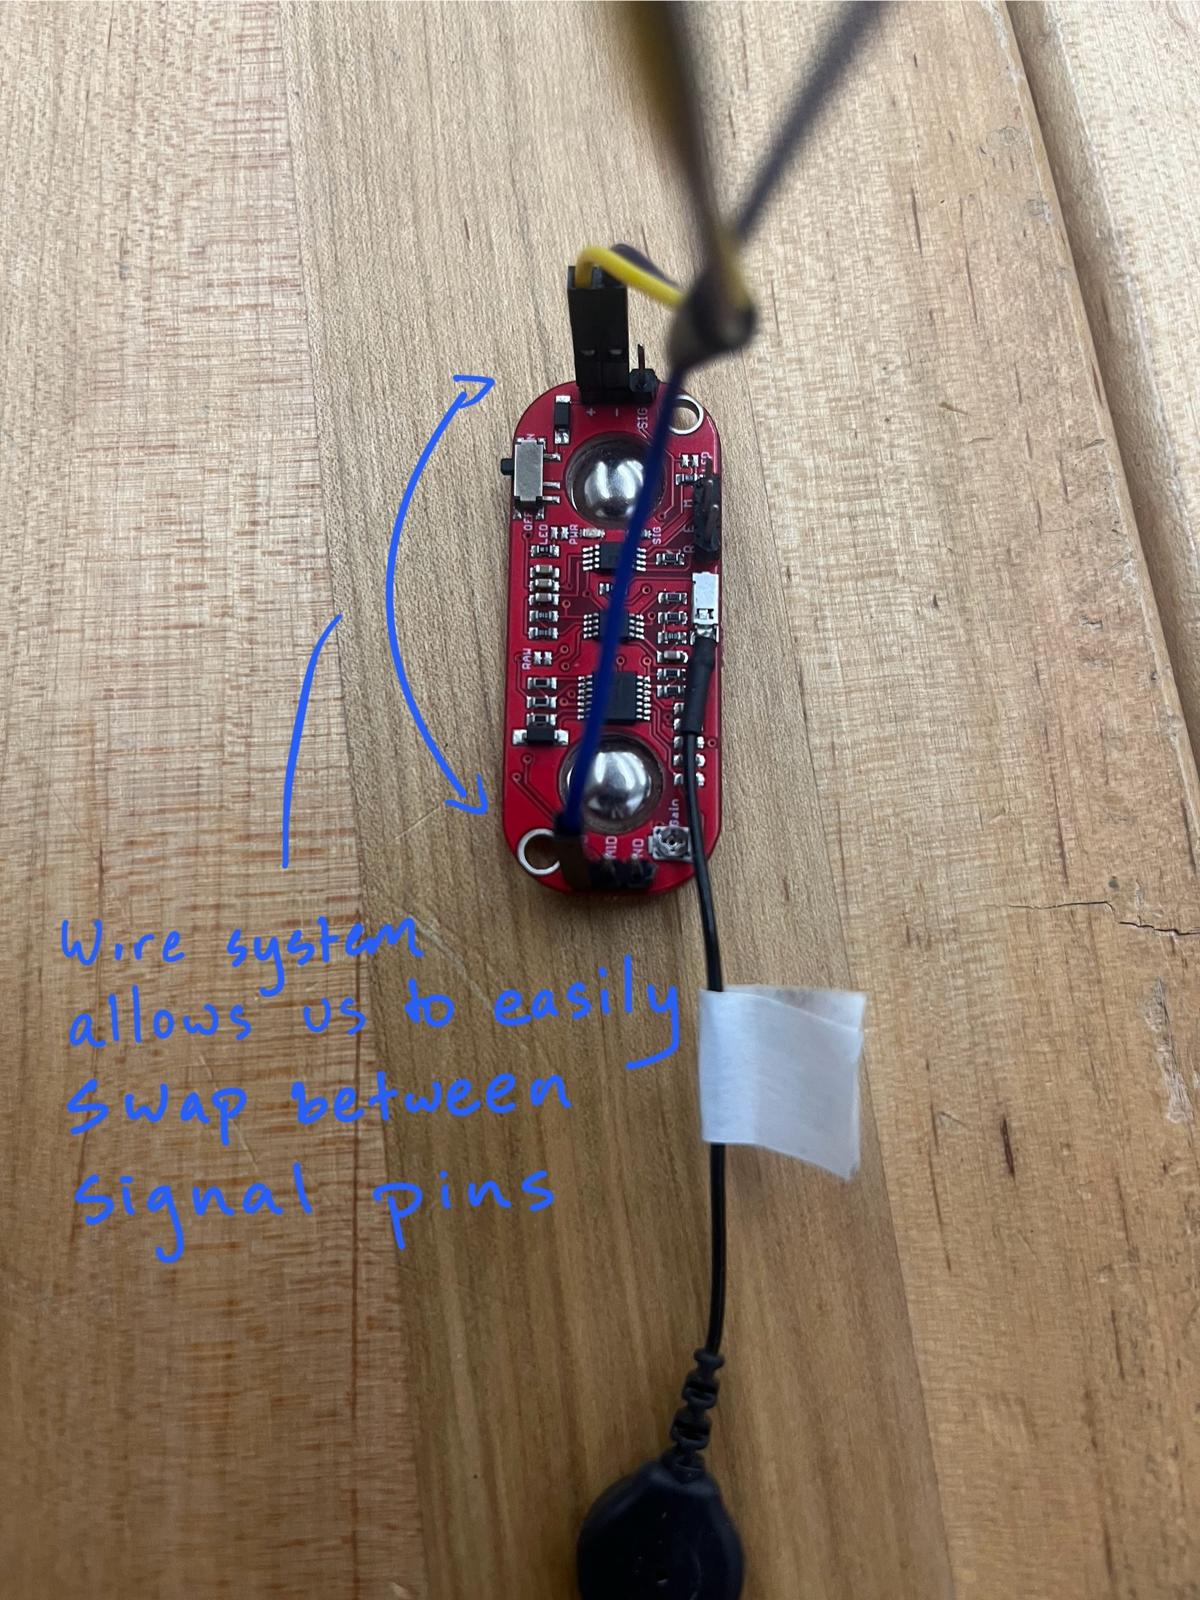 + - SIG
OFF
LED
PWR
SIG
R E M
RAW
Gain
Wire system
allows us to easily
swap between
signal pins